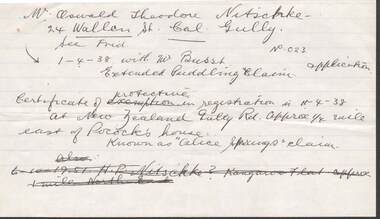 Mr. Oswald Theodore Nitschke
24 Wallen St. Cal. Gully.
See Fred
No 023
1-4-38 with W Busst application
Extended Puddling Claim
protective
Certificate of exemption in registration is 11-4-38
at New Zealand Gully Rd. Approx 1/4 mile
east of Pococks house.
Known as "Alice Springs" claim
also
1951 H. P. Nitschke? Kangaroo Flat approx
1 mile North East